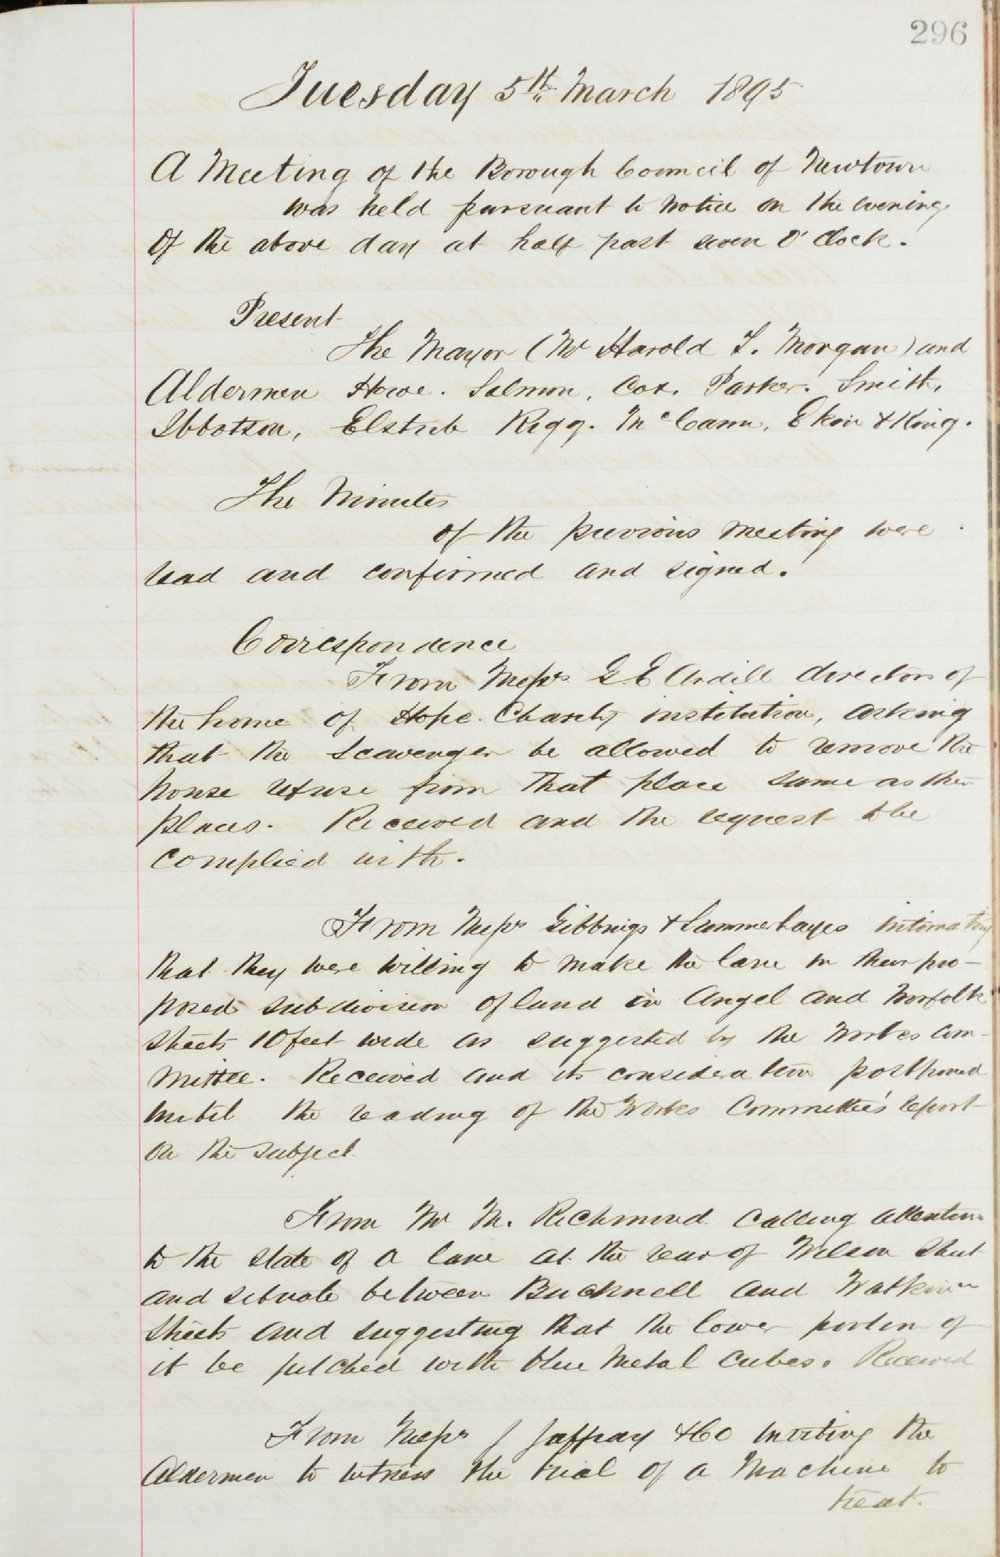 296
Tuesday 5th March 1895
A Meeting of the Borough Council of Newtown
was held pursuant to notice on the evening
Of the above day at half past seven O'Clock.
Present
The Mayor (Mr Harold F. Morgan) and
Aldermen Howe. Salmon, Cox. Parker. Smith,
Ibbotson, Elstub Rigg. McCann, Ekin & King.
The Minutes
of the previous meeting were
read and confirmed and signed.
Correspondence
From Messrs G E Ardill directors of
the home of Hope. Charity institution, asking
that the Scavenger be allowed to remove the
house refuse from that place same as other
places. Received and the request to be
Complied with.
From Messrs Gibbings & Summerhayes intimating
that they were willing to make the lane in their pro-
posed subdivision of land in Angel and Norfolk
streets 10 feet wide as suggested by the Works Com-
mittee. Received and its consideration postponed
until the reading of the Works Committee's report
on the subject.
From Mr M. Richmond calling attention
to the state of a lane at the rear of Wilson Street
and situate between Bucknell and Watkin
Streets and suggesting that the lower portion of
it be pitched with blue metal cubes. Received
From Messrs J Jaffray & Co inviting the
Aldermen to witness the trial of a Machine to
treat.